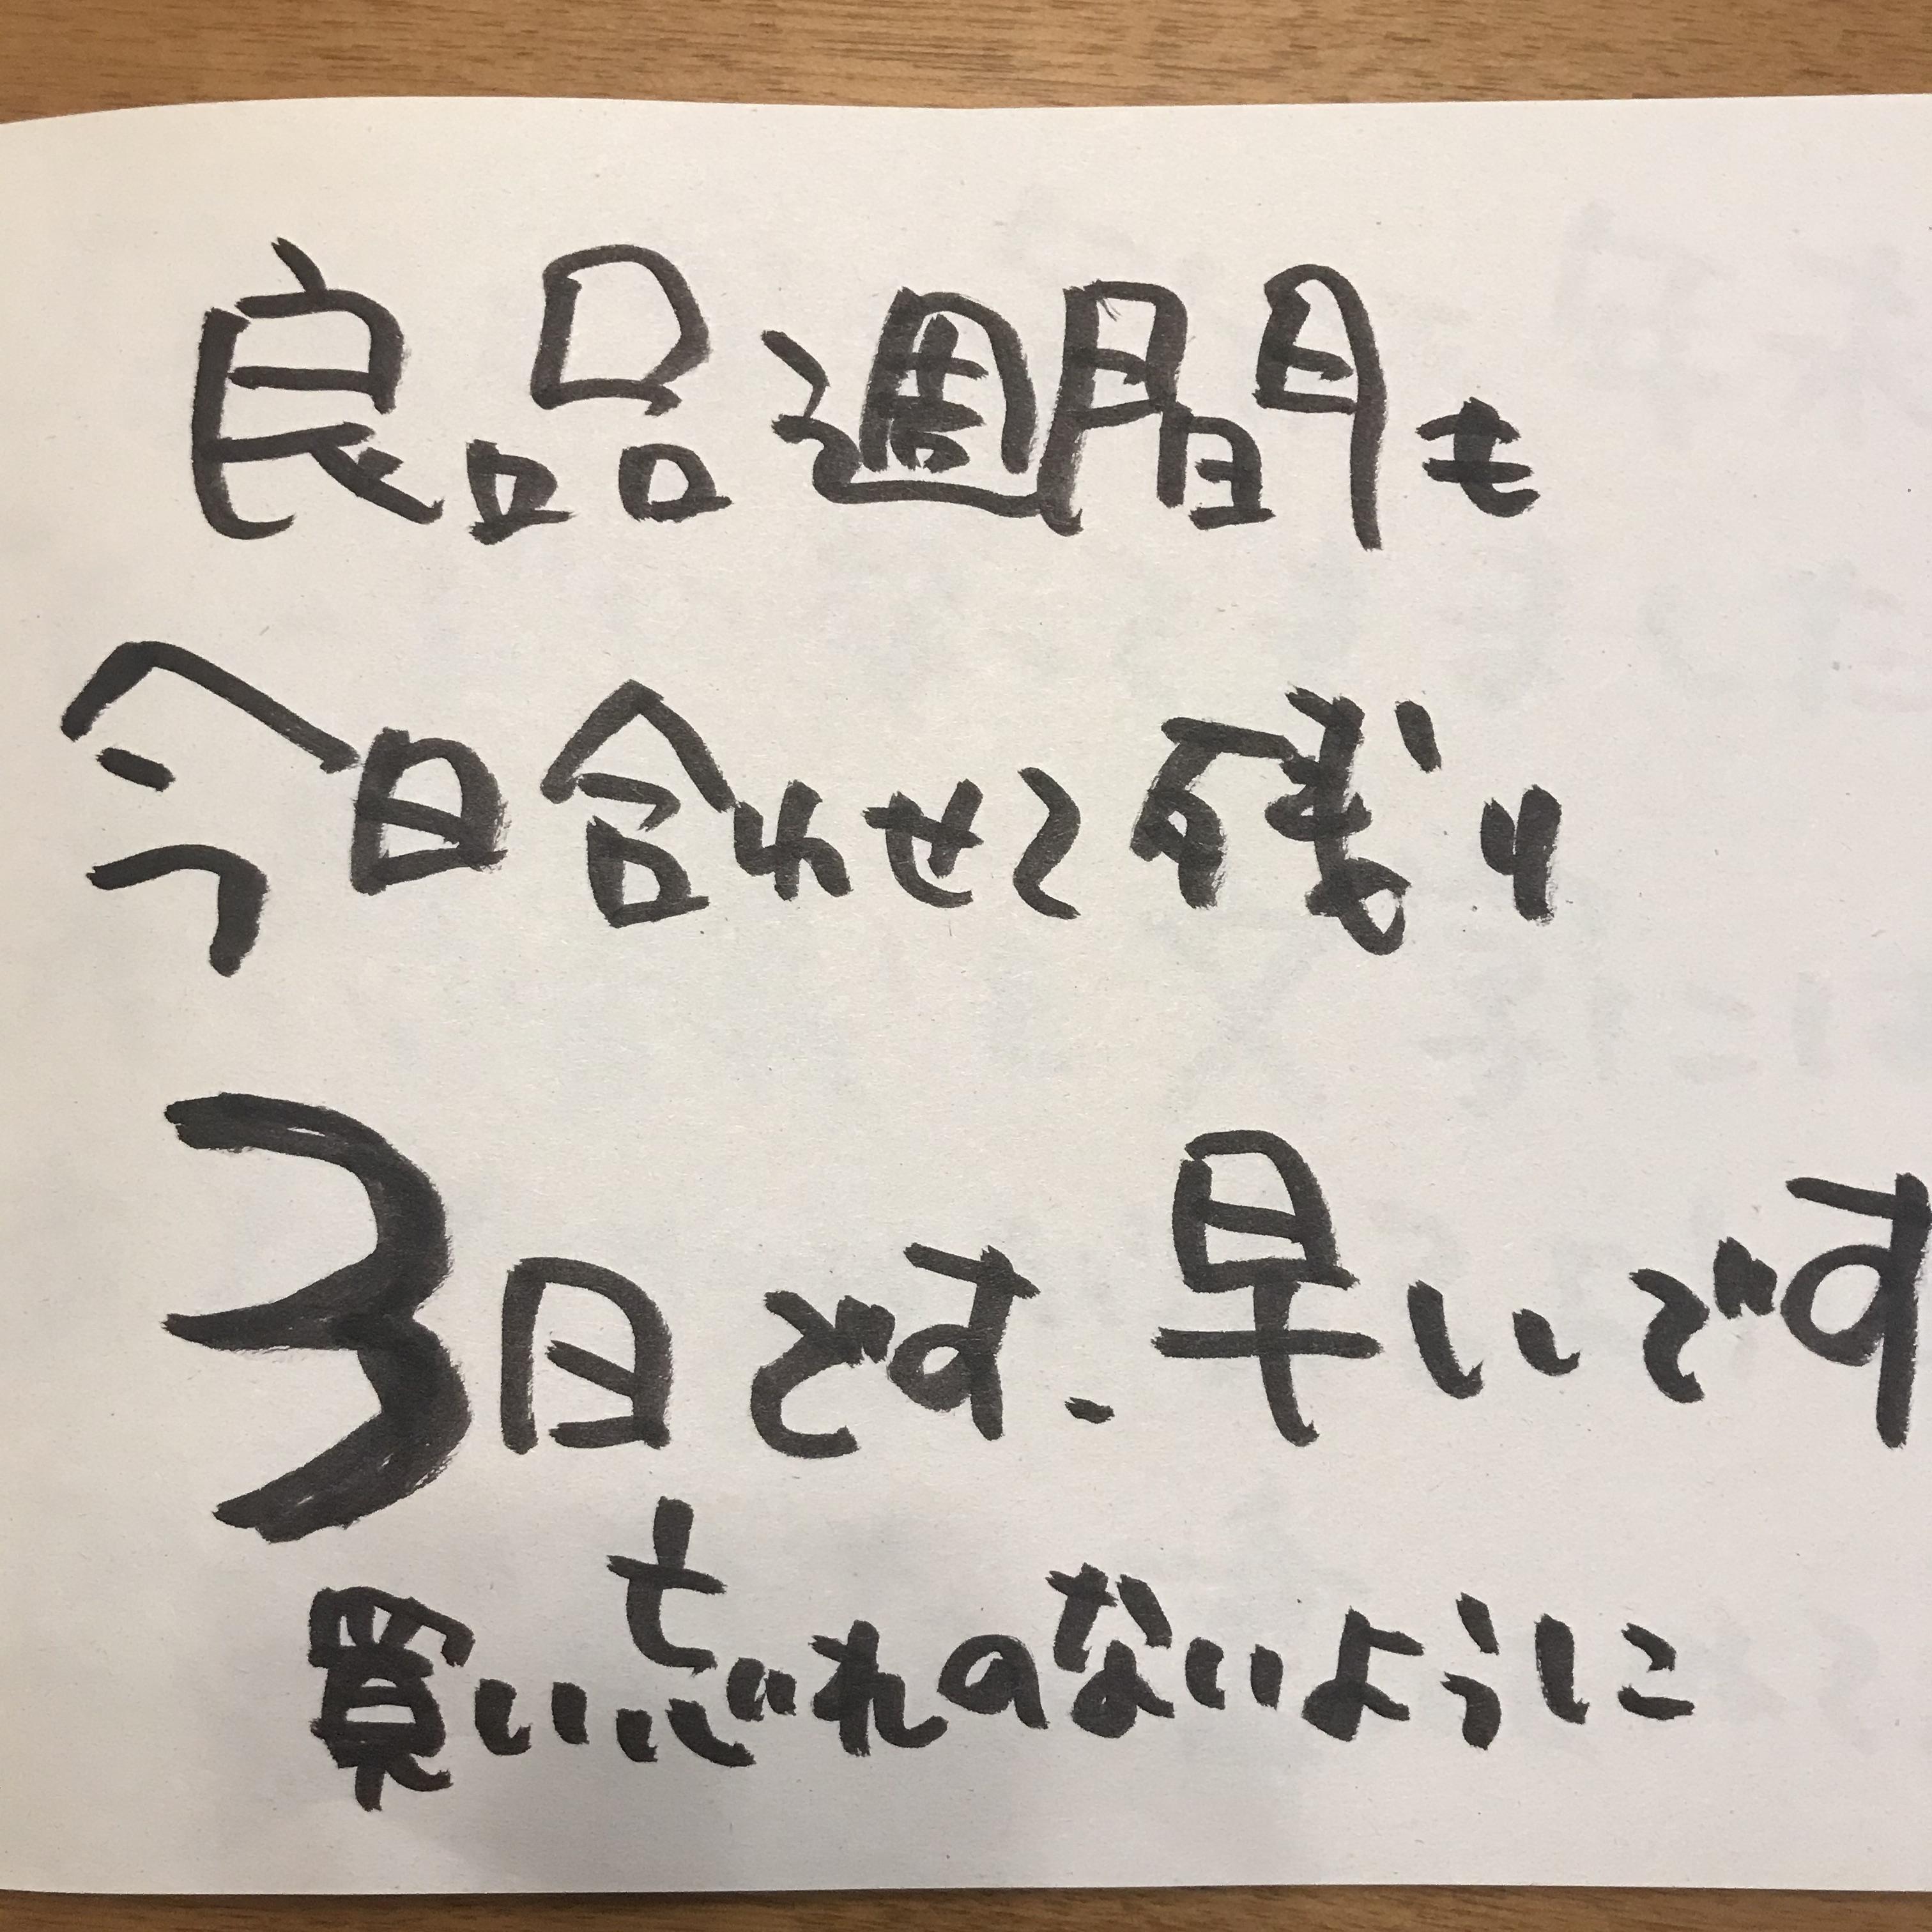 良品週間も
今日合わせて残り
3日です、早いです
買い忘れのないように